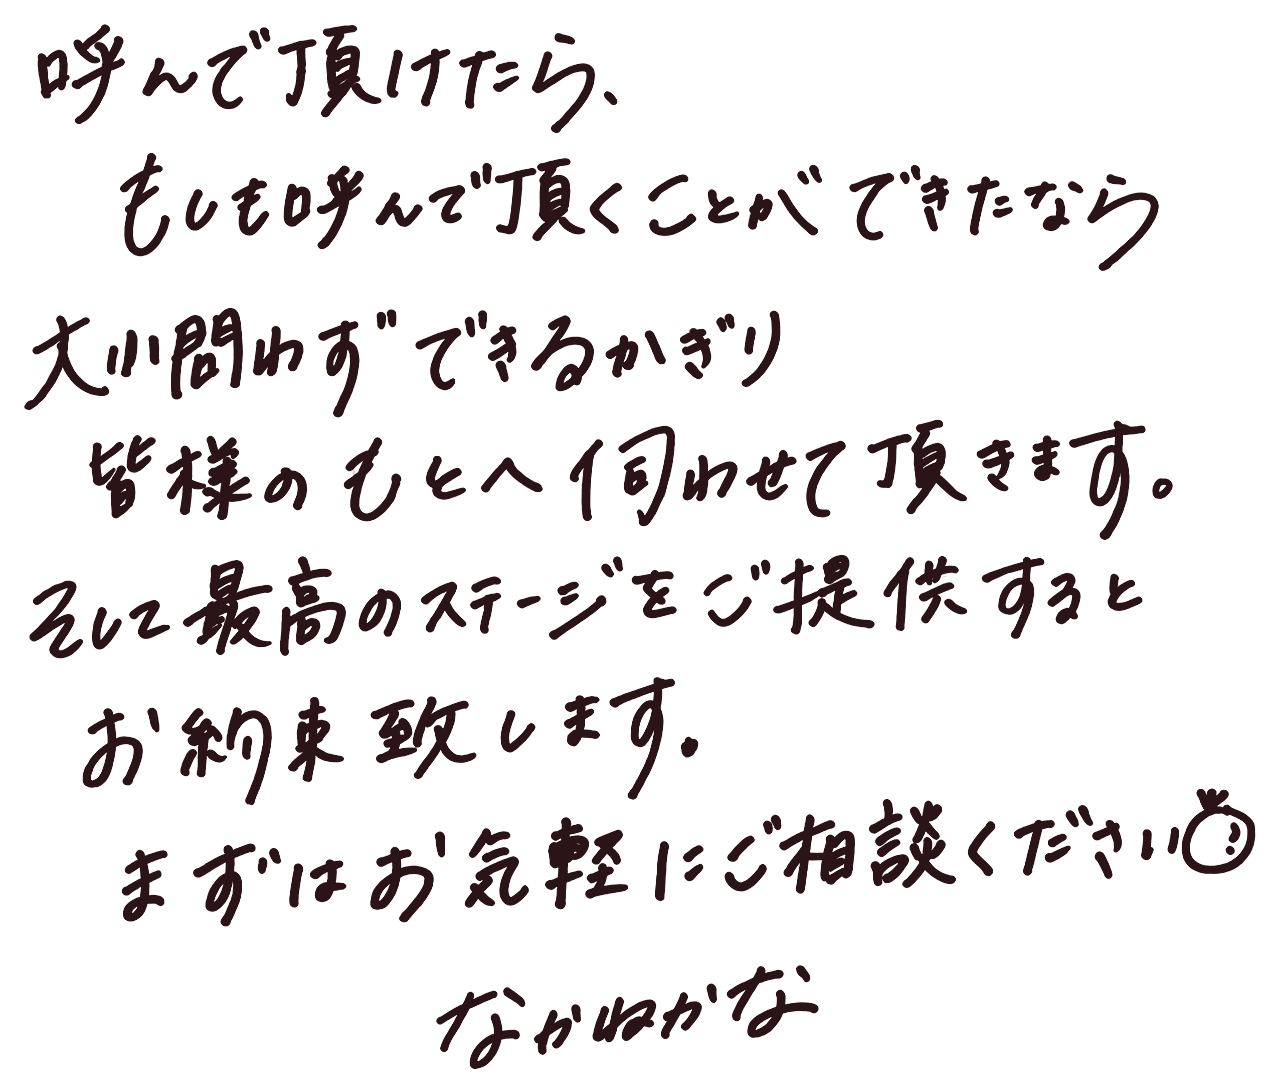 呼んで頂けたら、
もしも呼んで頂くことができたなら
大小問わずできるかぎり
皆様のもとへ伺わせて頂きます。
そして最高のステージをご提供すると
お約束致します。
まずはお気軽にご相談ください
なかねかな